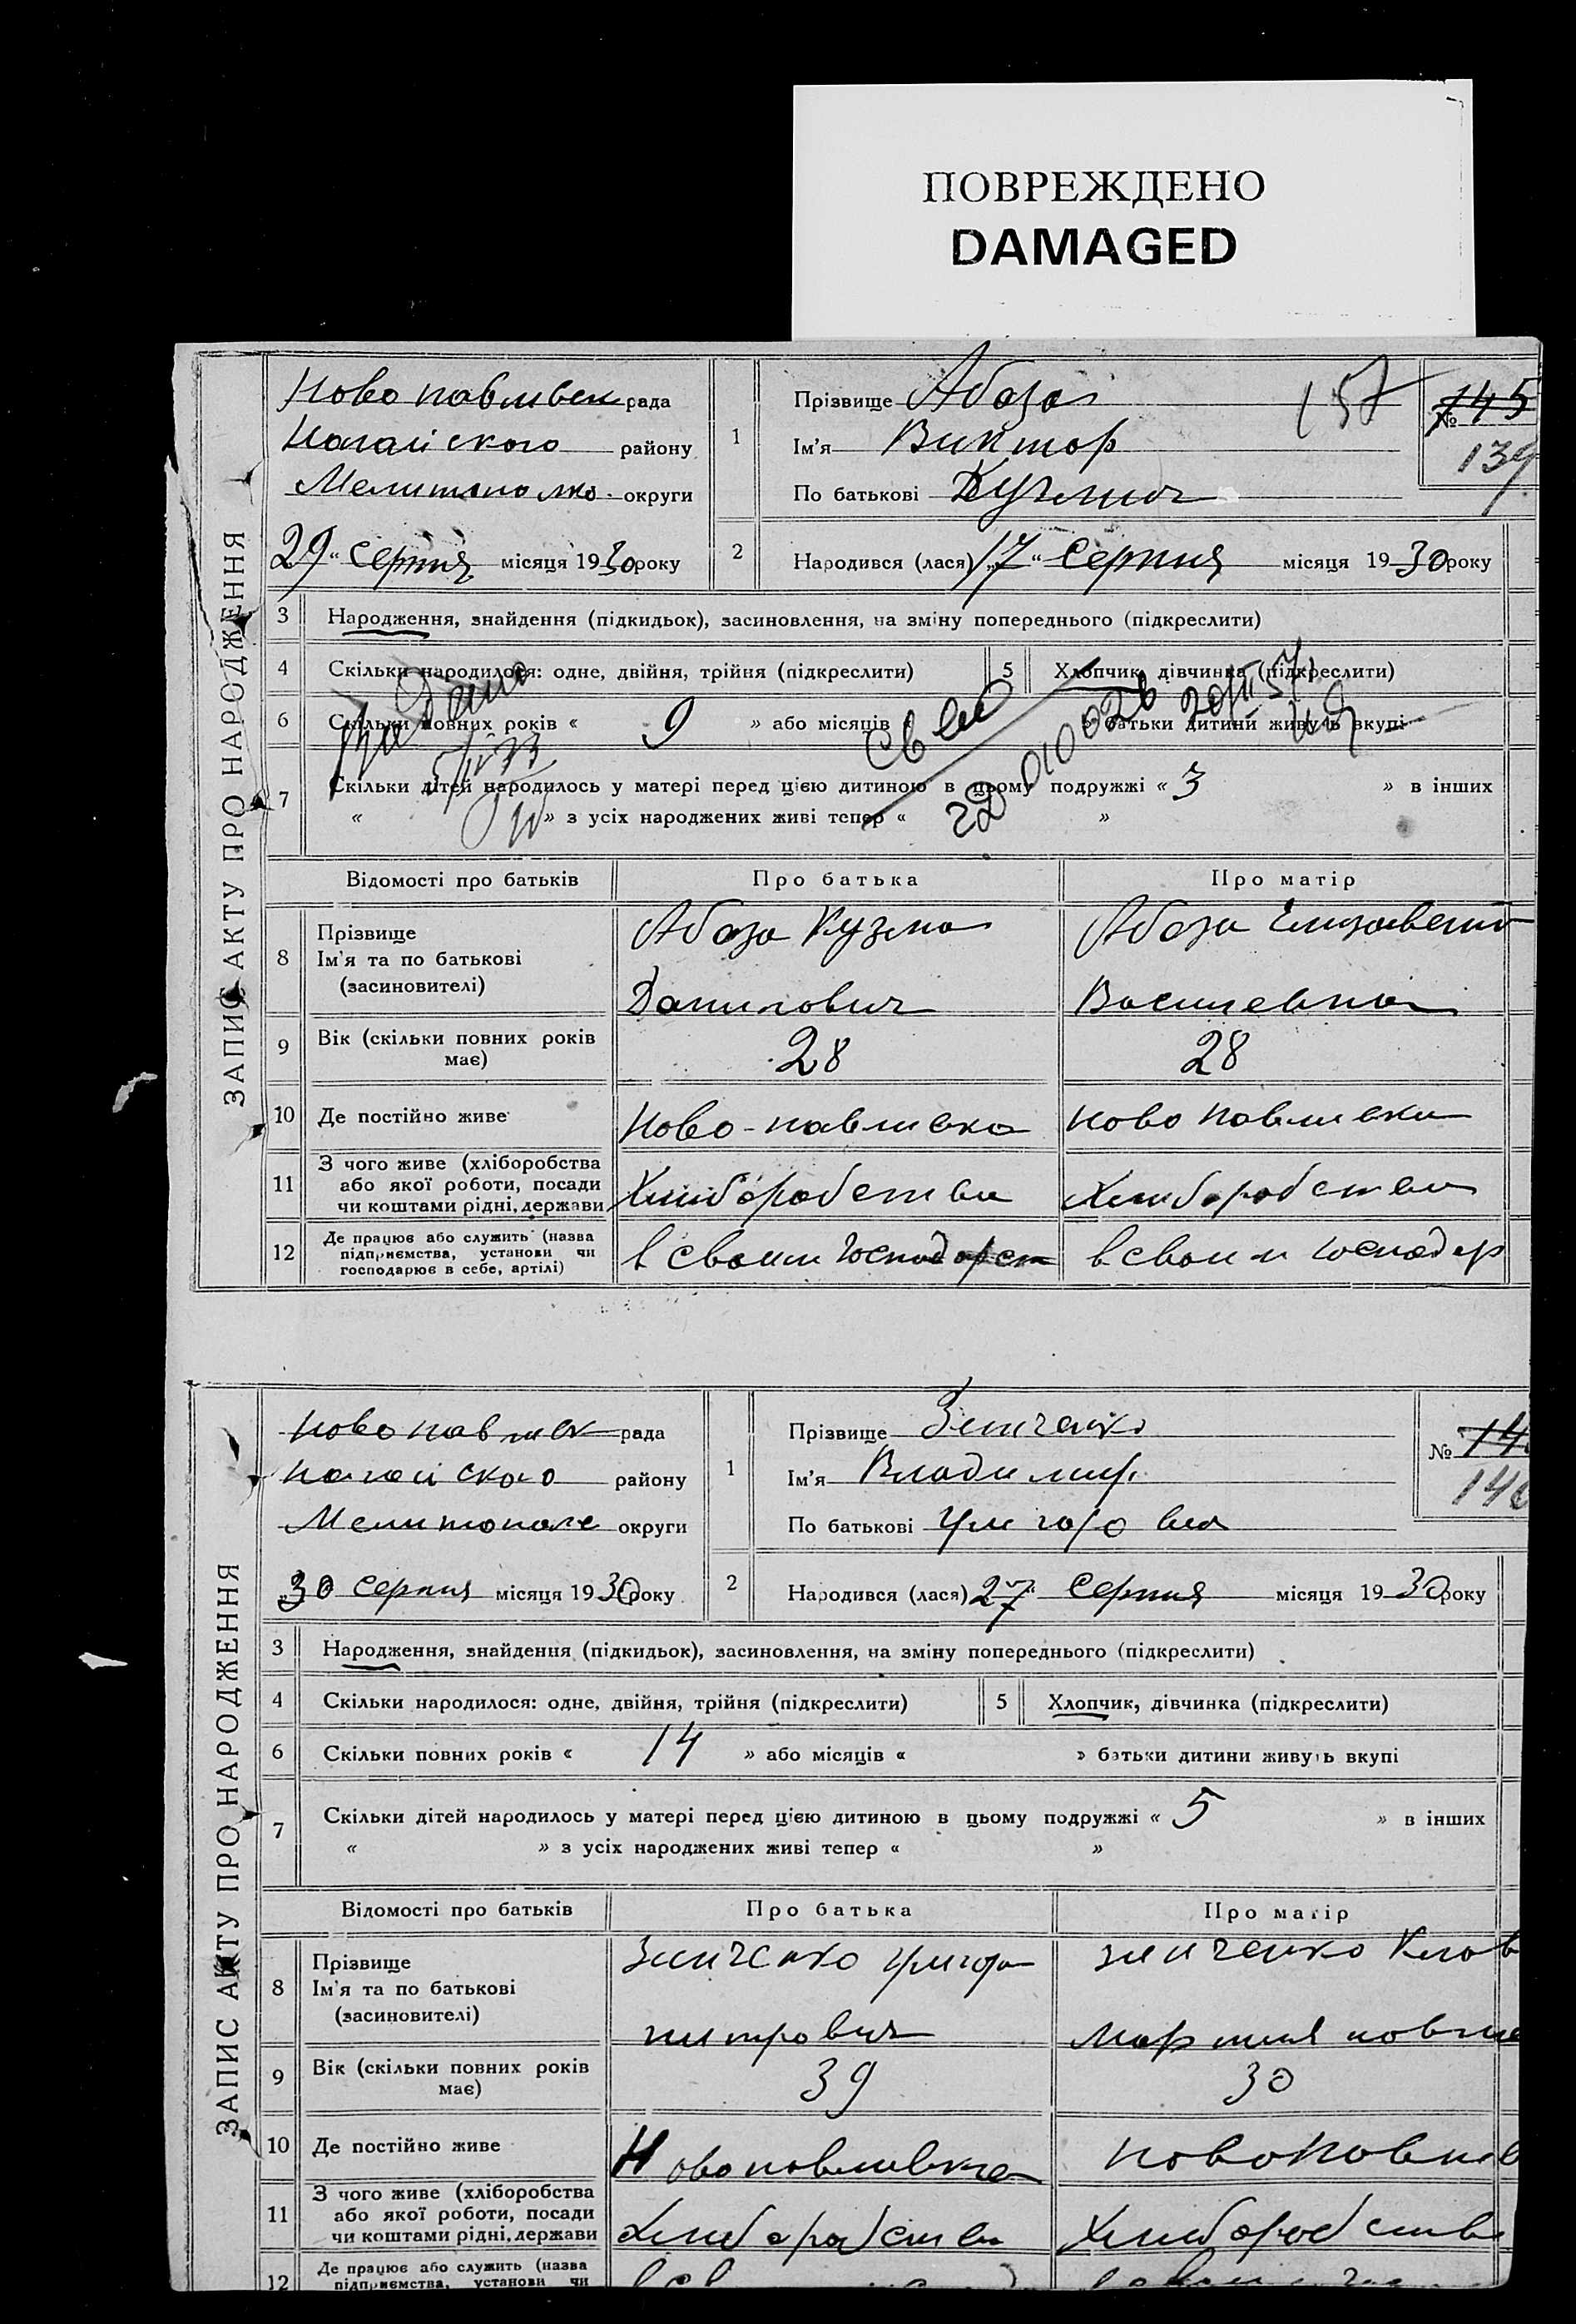 ПОВРЕЖДЕНО
DAMAGED
ЗАПИС АКТУ ПРО НАРОДЖЕННЯ
Ново павливск рада
Нагайського району
округи
29 " Серпня місяця 1930 року
1
Прізвище Абаза
Ім'я Виктор
По батькові Кузмич
157
№ 145
139
2
Народився (лася) "17" Серпня місяця 1930 року
3 Народження, знайдення (підкидьок), засиновлення, на зміну попереднього (підкреслити)
4 Скільки народилося: одне, двійня, трійня (підкреслити) 5 Хлопчик, дівчинка (підкреслити)
6 Скільки повних років « 9 » або місяців « » батьки дитини живуть вкупі
7 Скільки дітей народилось у матері перед цією дитиною в цьому подружжі « 3 » в інших
« » з усіх народжених живі тепер « »
Відомості про батьків Про батька Про матір
8 Прізвище Ім'я та по батькові (засновителі)
Абаза Кузма Данилович
Абаза Елизавета Василевна
9 Вік (скільки повних років має) 28 28
10 Де постійно живе Ново-павливка Ново павливки
11 З чого живе (хліборобства або якої роботи, посади чи коштами рідні, держави Хлиборобства Хлиборобства
12 Де працює або служить (назва підприємства, установи чи господарює в себе, артілі) в своим господарст в своим господар
ЗАПИС АКТУ ПРО НАРОДЖЕННЯ
Ново павливк рада
Нагайского району
округи
"30 Серпня місяця 1930 року
1
Прізвище Зинченко
Ім'я Владимир
По батькові
№
2
Народився (лася) 27 " Серпня місяця 1930 року
3 Народження, знайдення (підкидьок), засиновлення, на зміну попереднього (підкреслити)
4 Скільки народилося: одне, двійня, трійня (підкреслити) 5 Хлопчик, дівчинка (підкреслити)
6 Скільки повних років « 14 » або місяців « » батьки дитини живуть вкупі
7 Скільки дітей народилось у матері перед цією дитиною в цьому подружжі « 5 » в інших
« » з усіх народжених живі тепер « »
Відомості про батьків Про батька Про матір
8 Прізвище Ім'я та по батькові (засиновителі)
Зинченко Григор питрович
зинченко Клав
9 Вік (скільки повних років має) 39 30
10 Де постійно живе Новопавливка новопавлив
11 З чого живе (хліборобства або якої роботи, посади чи коштами рідні, держави Хлиборобства Хлиборобств
12 Де працює або служить (назва підприємства, установи чи